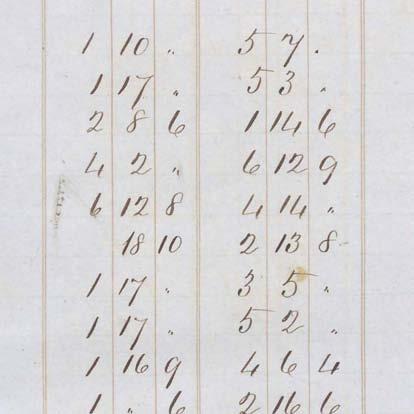 1 10 " 5 7 "
1 17 " 5 3 "
2 8 6 1 14 6
4 2 " 6 12 9
6 12 8 4 14 "
18 10 2 13 8
1 17 " 3 5 "
1 17 " 5 2 "
1 16 9 4 6 4
1 " 6 2 16 6